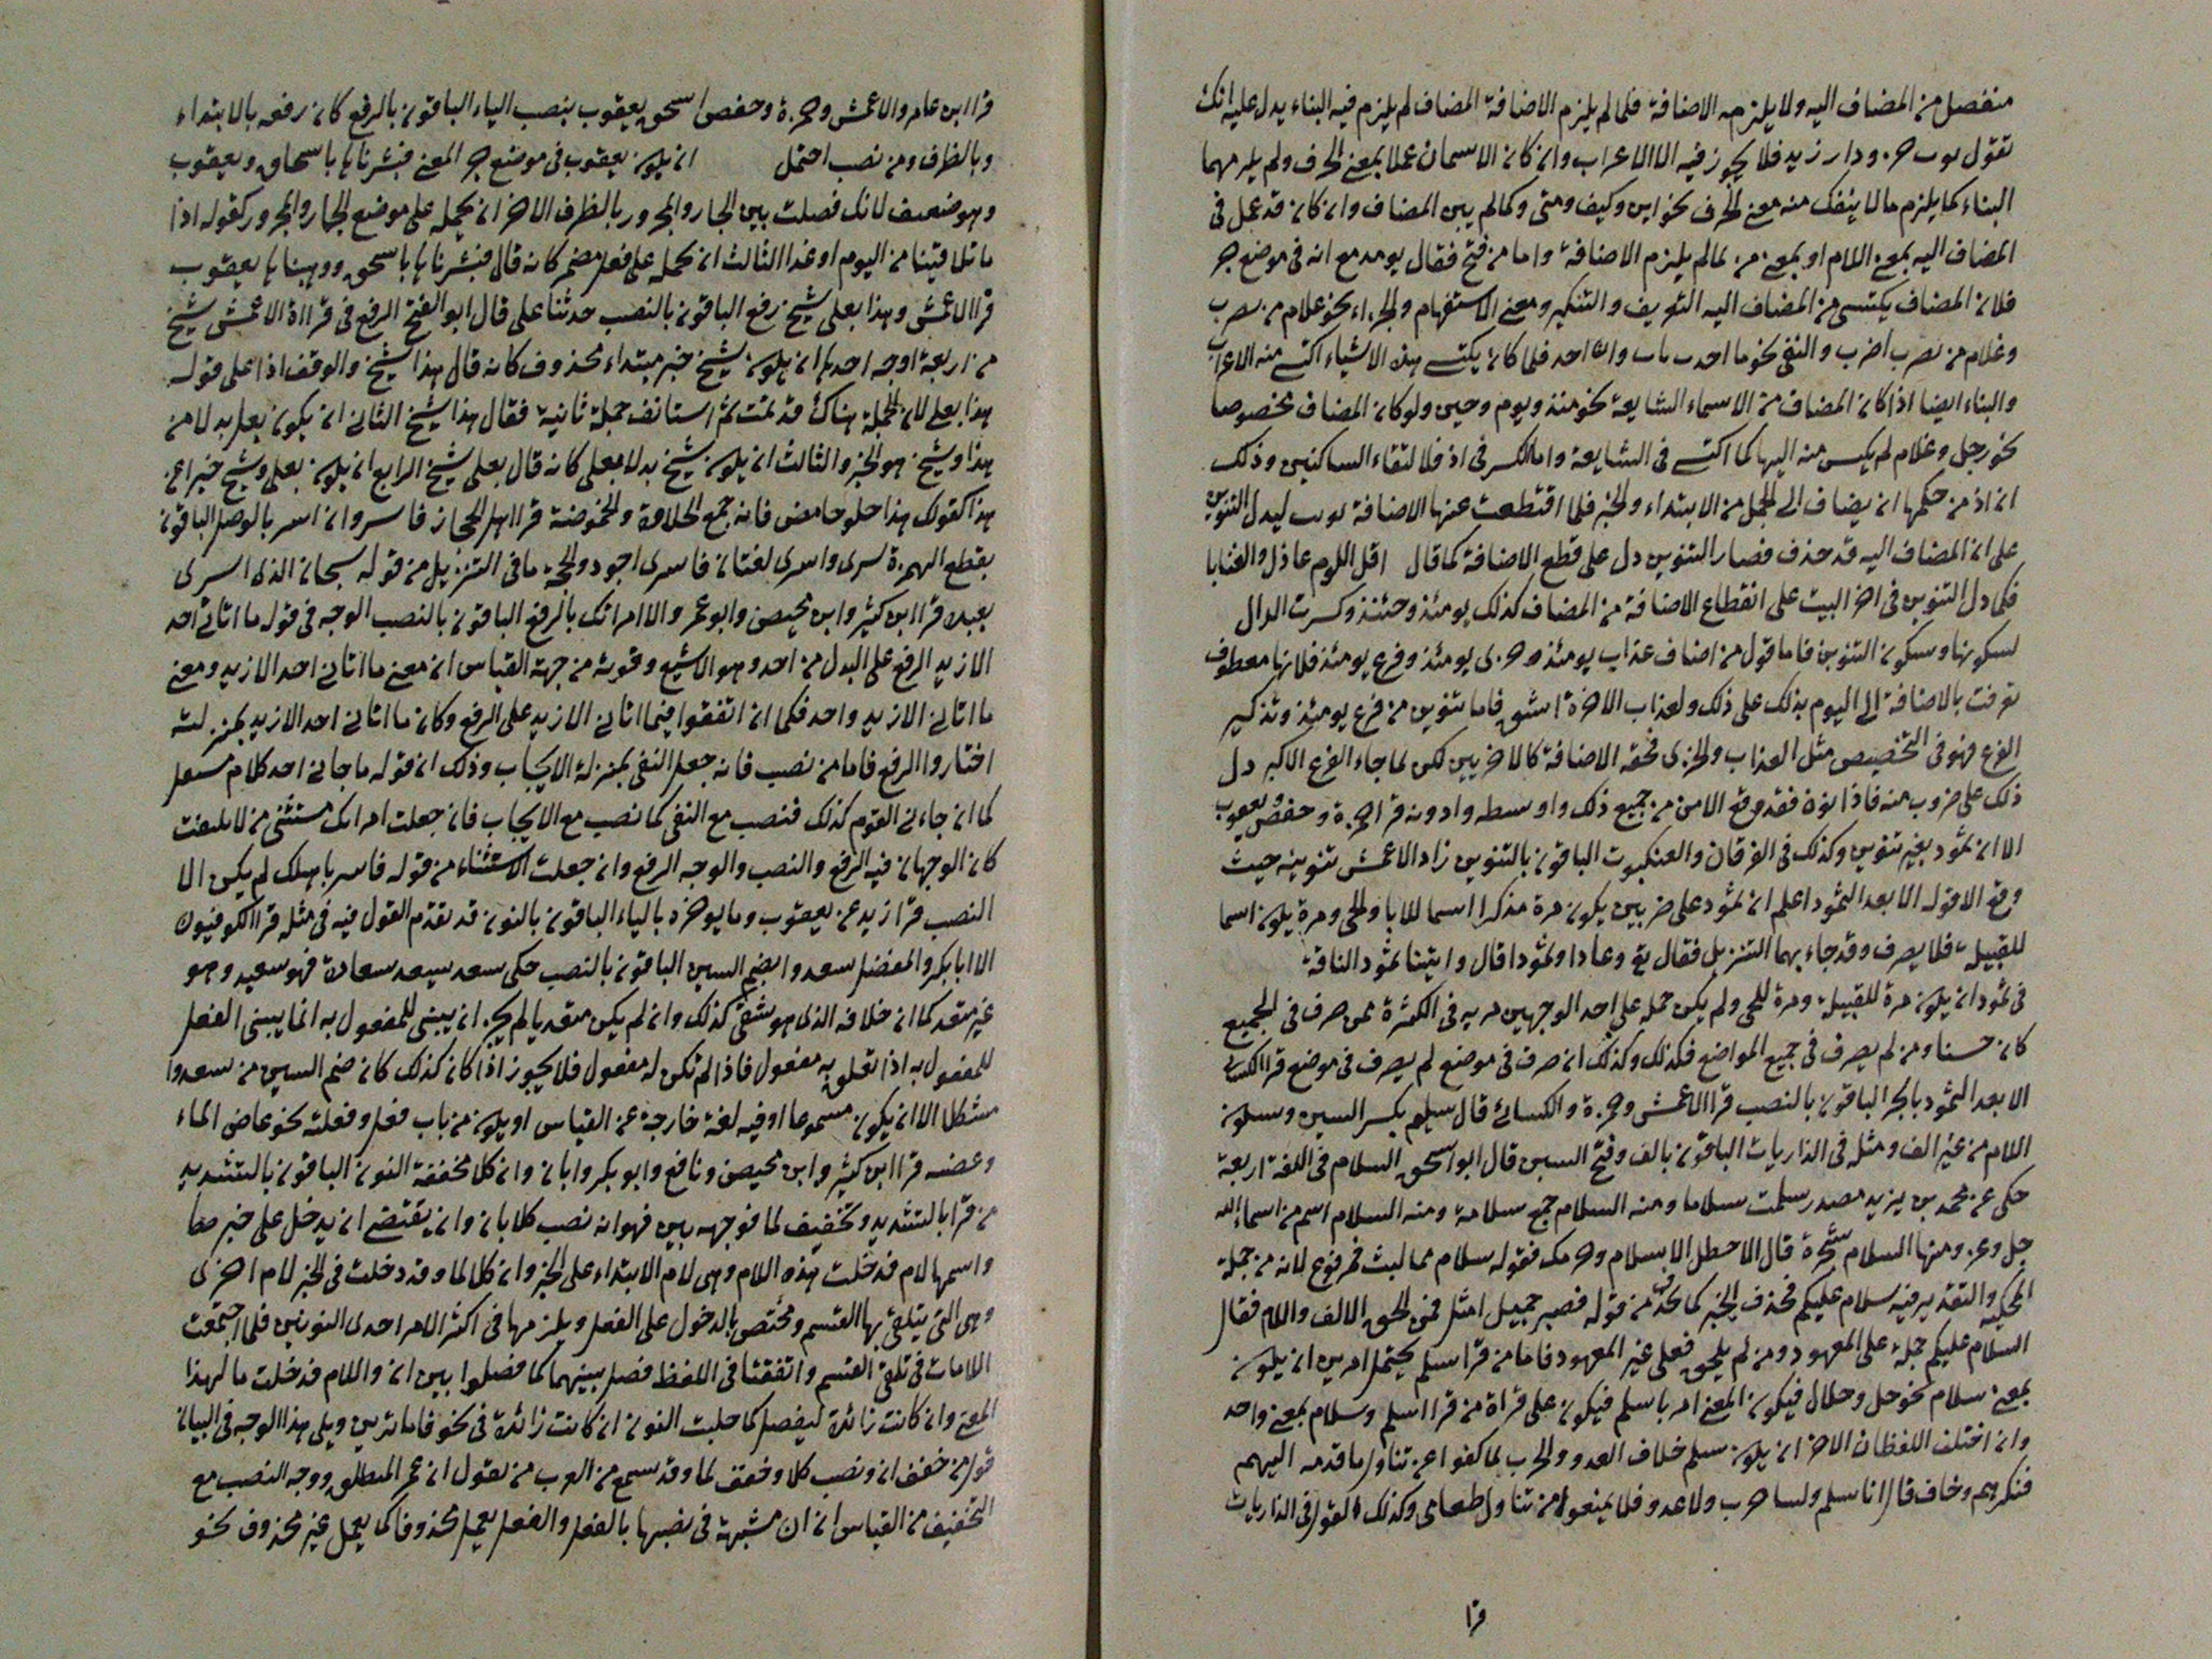 منفصل من المضاف اليه ولا يلزمه الاضافة فلما لم يلزم الاضافة المضاف لم يلزم فيه البناء يدل عليه انك
تقول ودار زيد فلا يجوز فيه الا الاعراب وان كان الاسمان عملا بمعنى الحرف ولم يلزمهما
البناء كما يلزم ما لا ينفك منه معنى الحرف نحو اين وكيف ومتى وكما لم يبن المضاف وان كان قد عمل في
المضاف اليه بمعنى اللام او بمعنى من لما لم يلزم الاضافة واما من فتح فقال يومئذ مع انه في موضع جر
فلان المضاف يكتسي من المضاف اليه التعريف والتنكير ومعنى الاستفهام والجزاء نحو غلام من يضرب
وغلام من يضرب اضرب والنفي نحو ما احد باب فلما كان يكتسي هذه الاشياء اكتسى منه الاعراب
والبناء ايضا اذا كان المضاف من الاسماء الشايعة نحو منذ ويوم وحين ولو كان المضاف مخصوصا
نحو رجل وغلام لم يكتس منه اليها كما اكتسى في الشايعة واما الكسر في اذ فلالتقاء الساكنين وذلك
ان اذ من حكمها ان يضاف الى الجمل من الابتداء والخبر فلما اقتطعت عنها الاضافة نونت ليدل التنوين
على ان المضاف اليه قد حذف فصار التنوين دل على قطع الاضافة كما قال اقل اللوم عاذل والعتابا
فكما دل التنوين في اخر البيت على انقطاع الاضافة من المضاف كذلك يومئذ وحينئذ وكسرت الدال
لسكونها وسكون التنوين فاما قول من اضاف عذاب يومئذ وخزى يومئذ وفزع يومئذ فلانها معطوف
تعرفت بالاضافة الى اليوم بذلك على ذلك ولعذاب الاخرة اشق فاما تنوين من فزع يومئذ وتذكير
الفزع فهو في التخصيص مثل العذاب والخزى فحقه الاضافة كالاخريين لكن لما جاء الفزع الاكبر دل
ذلك على ضروب منه فاذا نون فقد وقع الامن من جميع ذلك واوسطه وادونه قرا حمزة وحفص ويعقوب
الا ان ثمود بغير تنوين وكذلك في الفرقان والعنكبوت الباقون بالتنوين زاد الاعمش تنوينه حيث
وقع الا قوله الا بعدا لثمود اعلم ان ثمود على ضربين يكون مرة مذكرا اسما للاب او للحى ومرة يكون اسما
للقبيلة فلا يصرف وقد جاء بهما التنزيل فقال تع وعادا وثمودا وقال واتينا ثمود الناقة
في ثمود ان يكون مرة للقبيلة ومرة للحى ولم يكن حمله على احد الوجهين مزية في الكثرة فمن صرف في الجميع
كان حسنا ومن لم يصرف في جميع المواضع فكذلك وكذلك ان صرف في موضع لم يصرف في موضع قرا الكسائي
الا بعدا لثمود بالجر الباقون بالنصب قرا الاعمش وحمزة والكسائي قال سلم بكسر السين وسكون
اللام من غير الف ومثله في الذاريات الباقون بالف وفتح السين قال ابو اسحق السلام في اللغة اربعة
حكى عن محمد بن يزيد مصدر سلمت سلاما ومنه السلام جمع سلامة ومنه السلام اسم من اسماء الله
جل وعز ومنها السلام شجرة قال الاخطل الا سلام وحرمل فقوله سلام مما لبث فمرفوع لانه من جملة
المحكية والتقدير فيه سلام عليكم فحذف الخبر كما حذف من قوله فصبر جميل امثل فمن الحق الالف واللام فقال
السلام عليكم حمله على المعهود ومن لم يلحق فعلى غير المعهود فاما من قرا سلم يحتمل امرين ان يكون
بمعنى سلام نحو حل وحلال فيكون المعنى امر باسلم فيكون على قراة من قرا سلم وسلام بمعنى واحد
وان اختلف اللفظان الاخر ان يكون سلم خلاف العدو والحرب لما كفوا عن تناول ما قدمه اليهم
فنكرهم وخاف قال انا سلم ولسنا حرب ولا عدو فلا تمتنعوا من تناول طعامى وكذلك القول في الذاريات
قرا
قرا ابن عامر والاعمش وحمزة وحفص اسحق يعقوب بنصب الياء الباقون بالرفع كان رفعه بالابتداء
وبالظرف ومن نصب احتمل ان يكون يعقوب في موضع جر المعنى فبشرناها باسحاق ويعقوب
وهو ضعيف لانك فصلت بين الجار والمجرور بالظرف الاخر ان يحمله على موضع الجار والمجرور كقوله اذا
ما تلاقينا من اليوم او غدا الثالث ان يحمله على فعل مضمر كانه قال فبشرناها باسحق ووهبنا لها يعقوب
قرا الاعمش وهذا بعلى شيخ رفع الباقون بالنصب حدثنا على قال ابو الفتح الرفع في قراءة الاعمش شيخ
من اربعة اوجه احدها ان يكون شيخ خبر مبتداء محذوف كانه قال هذا شيخ والوقف اذا على قوله
هذا بعلى لان الجملة هناك قد تمت ثم استانف جملة ثانية فقال هذا شيخ الثاني ان يكون بعلى بدلا من
هذا وشيخ هو الخبر والثالث ان يكون شيخ بدلا بعلى كانه قال بعلى شيخ الرابع ان يكون بعلى وشيخ خبرا عن
هذا كقولك هذا حلو حامض فانه جمع الحلاوة والحموضة قرا اهل الحجاز فاسر وان اسر بالوصل الباقون
بقطع الهمزة سرى واسرى لغتان فاسرى اجود والحجة ما في التنزيل من قوله سبحان الذى اسرى
بعبده قرا ابن كثير وابن محيصن وابو عمر والا امراتك بالرفع الباقون بالنصب الوجه في قوله ما اتانى احد
الا زيد الرفع على البدل من احد وهو الاشيع وقوته من جهة القياس ان معنى ما اتانى احد الا زيد ومعنى
ما اتانى الا زيد واحد فكما ان اتفقوا فيما اتانى الا زيد على الرفع وكان ما اتانى احد الا زيد بمنزلته
اختاروا الرفع فاما من نصب فانه جعل النفى بمنزلة الايجاب وذلك ان قوله ما جانى احد كلام مستقل
كما ان جاءنى القوم كذلك فنصب مع النفى كما نصب مع الايجاب فان جعلت امراتك مستثنى من لا يلتفت
كان الوجهان فيه الرفع والنصب والوجه الرفع وان جعلت الاستثناء من قوله فاسر باهلك لم يكن الا
النصب قرا زيد عن يعقوب وما يوخره بالياء الباقون بالنون قد تقدم القول فيه في مثله قرا الكوفيون
الا ابا بكر والمفضل سعدوا بضم السين الباقون بالنصب حكى سعد يسعد سعادة فهو سعيد وهو
غير متعد كما ان خلافه الذى هو شقى كذلك وان لم يكن متعديا لم يجز ان يبنى للمفعول به انما يبنى الفعل
للمفعول به اذا تعلق به مفعول فاذا لم تكن له مفعول فلا يجوز اذا كان كذلك كان ضم السين من سعدوا
مشكلا الا ان يكون مسموعا او فيه لغة خارجة عن القياس او يكون من باب فعل وفعلته نحو غاض الماء
وغضته قرا ابن كثير وابن محيصن ونافع وابو بكر وابان وان كلا مخففة النون الباقون بالتشديد
من قرا بالتشديد وتخفيف لما فوجهه بين فهو انه نصب كلا بان وان يقتضى ان يدخل على خبرها
واسمها لام فدخلت هذه اللام وهى لام الابتداء على الخبر وان كلا لما وقد دخلت في الخبر لام اخرى
وهى التى يتلقى بها القسم ومختص بالدخول على الفعل ويلزمها في اكثر الامر احدى النونين فلما اجتمعت
اللامات في تلقى القسم واتفقتا في اللفظ فصل بينهما كما فصلوا بين ان واللام فدخلت ما لهذا
المعنى وان كانت زائدة ليفصل كما جلبت النون ان كانت زائدة في نحو فاما ترين ويلى هذا الوجه في البيان
قول من خفف ان ونصب كلا وخفف لما وقد سمع من العرب من يقول ان عمر المنطلق ووجه النصب مع
التخفيف من القياس ان ان مشبهة في نصبها بالفعل والفعل يعمل محذوفا كما يعمل غير محذوف نحو